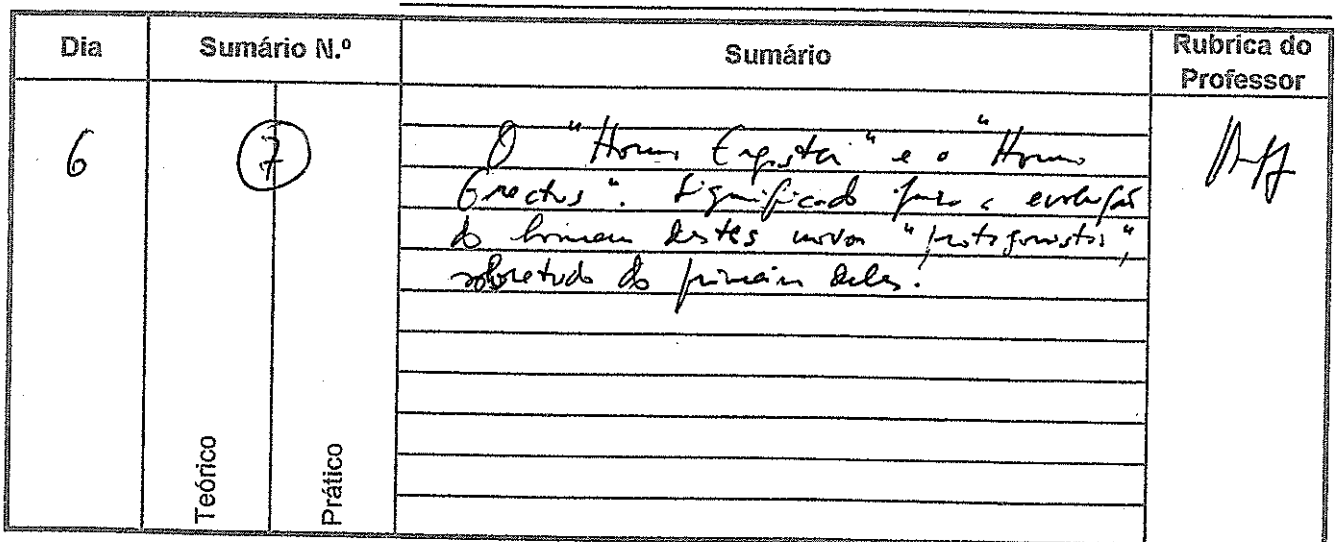 Dia Sumário N.º Sumário Rubrica do Professor
6 7 O "Homo Ergaster" e o "Homo
Erectus". Significado para a evolução
do homem destes novos "protagonistas",
sobretudo do primeiro deles.
Teórico Prático